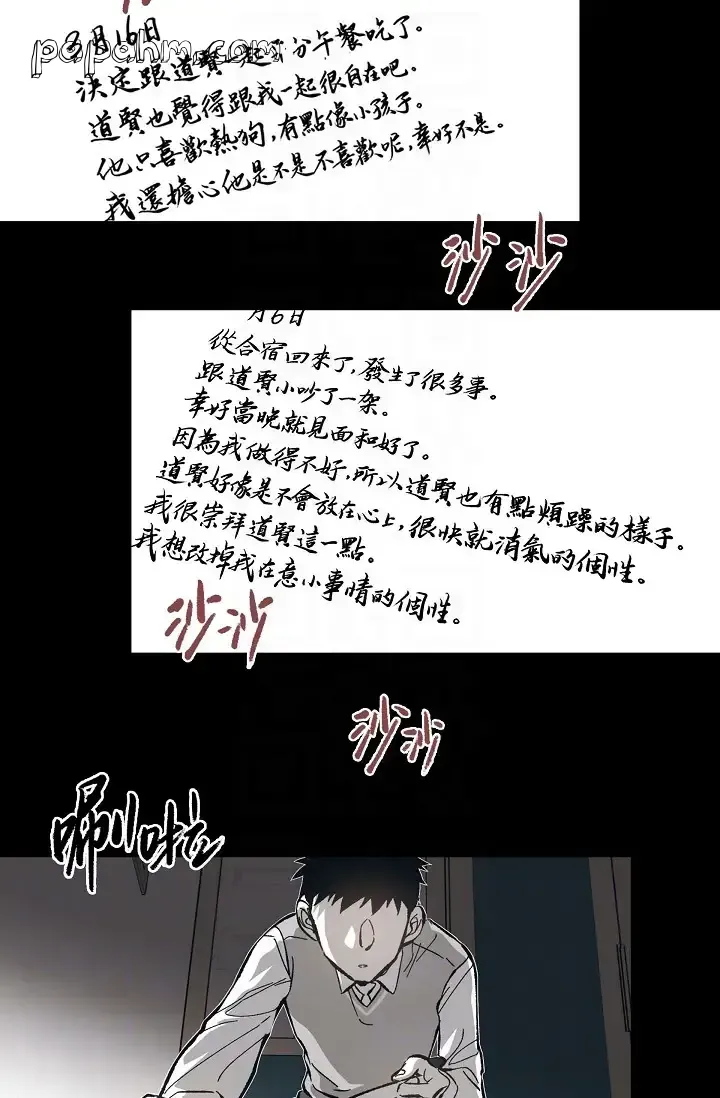 papahm.com
3月16日
決定跟道賢一起平分午餐吃了。
道賢也覺得跟我一起很自在吧.
他只喜歡熱狗,有點像小孩子。
我還擔心他是不是不喜歡呢,幸好不是。
沙沙
月6日
從合宿回來了,發生了很多事。
跟道賢小吵了一架。
幸好當晚就見面和好了。
因為我做得不好,所以道賢也有點煩躁的樣子。
道賢好像是不會放在心上,很快就消氣的個性。
我很崇拜道賢這一點。
我想改掉我在意小事情的個性。
沙沙
沙沙
唰啦